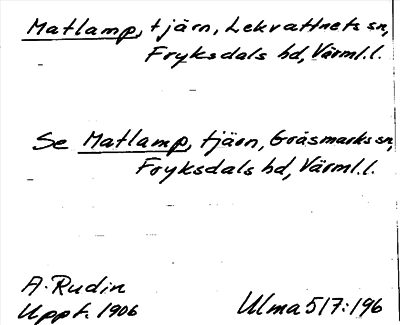 Matlamp, tjärn, Lekvattnets sn,
Fryksdals hd, Värml.l.
Se Matlamp, tjärn, Gräsmarks sn,
Fryksdals hd, Värml.l.
A. Rudin
Uppt. 1906
Ulma 517:196